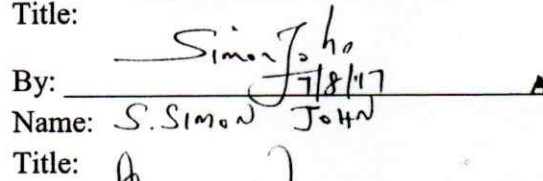 Title:
Simon John
By: 7/8/17
Name: S. SIMON JOHN
Title: